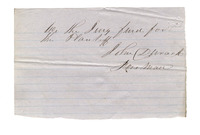 We the Jury find for
the Plaintiff
John
Foreman